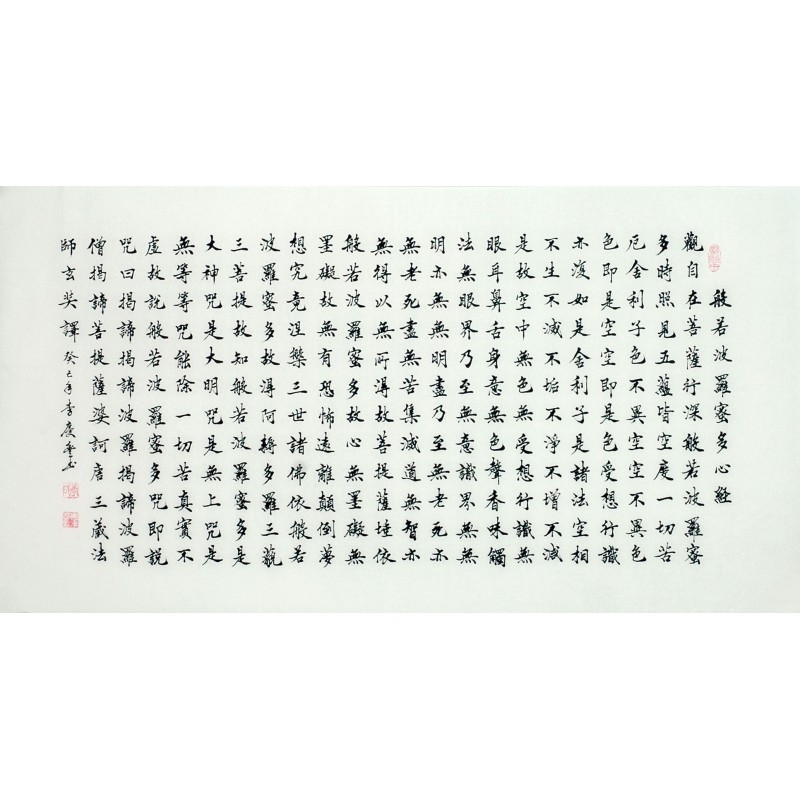 般若波羅蜜多心經
觀自在菩薩行深般若波羅蜜
多時照見五蘊皆空度一切苦
厄舍利子色不異空空不異色
色即是空空即是色受想行識
亦復如是舍利子是諸法空相
不生不滅不垢不淨不增不減
是故空中無色無受想行識無
眼耳鼻舌身意無色聲香味觸
法無眼界乃至無意識界無無
明亦無無明盡乃至無老死亦
無老死盡無苦集滅道無智亦
無得以無所得故菩提薩埵依
般若波羅蜜多故心無罣礙無
罣礙故無有恐怖遠離顛倒夢
想究竟涅槃三世諸佛依般若
波羅蜜多故得阿耨多羅三藐
三菩提故知般若波羅蜜多是
大神咒是大明咒是無上咒是
無等等咒能除一切苦真實不
虛故說般若波羅蜜多咒即說
咒曰揭諦揭諦波羅揭諦波羅
僧揭諦菩提薩婆訶唐三藏法
師玄奘譯 癸巳年李慶書